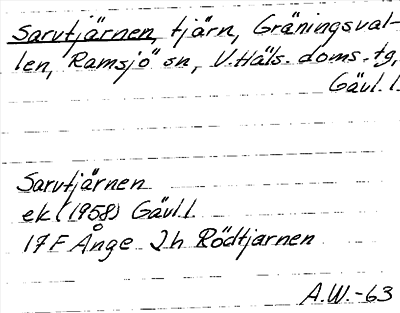 Sarvtjärnen, tjärn, Gräningsval-
len, Ramsjö sn, V. Häls. doms. tg,
Gävl. l.
Sarvtjärnen
ek (1958) Gävl. l.
17 F Ånge 2h Rödtjärnen
A.W.-63